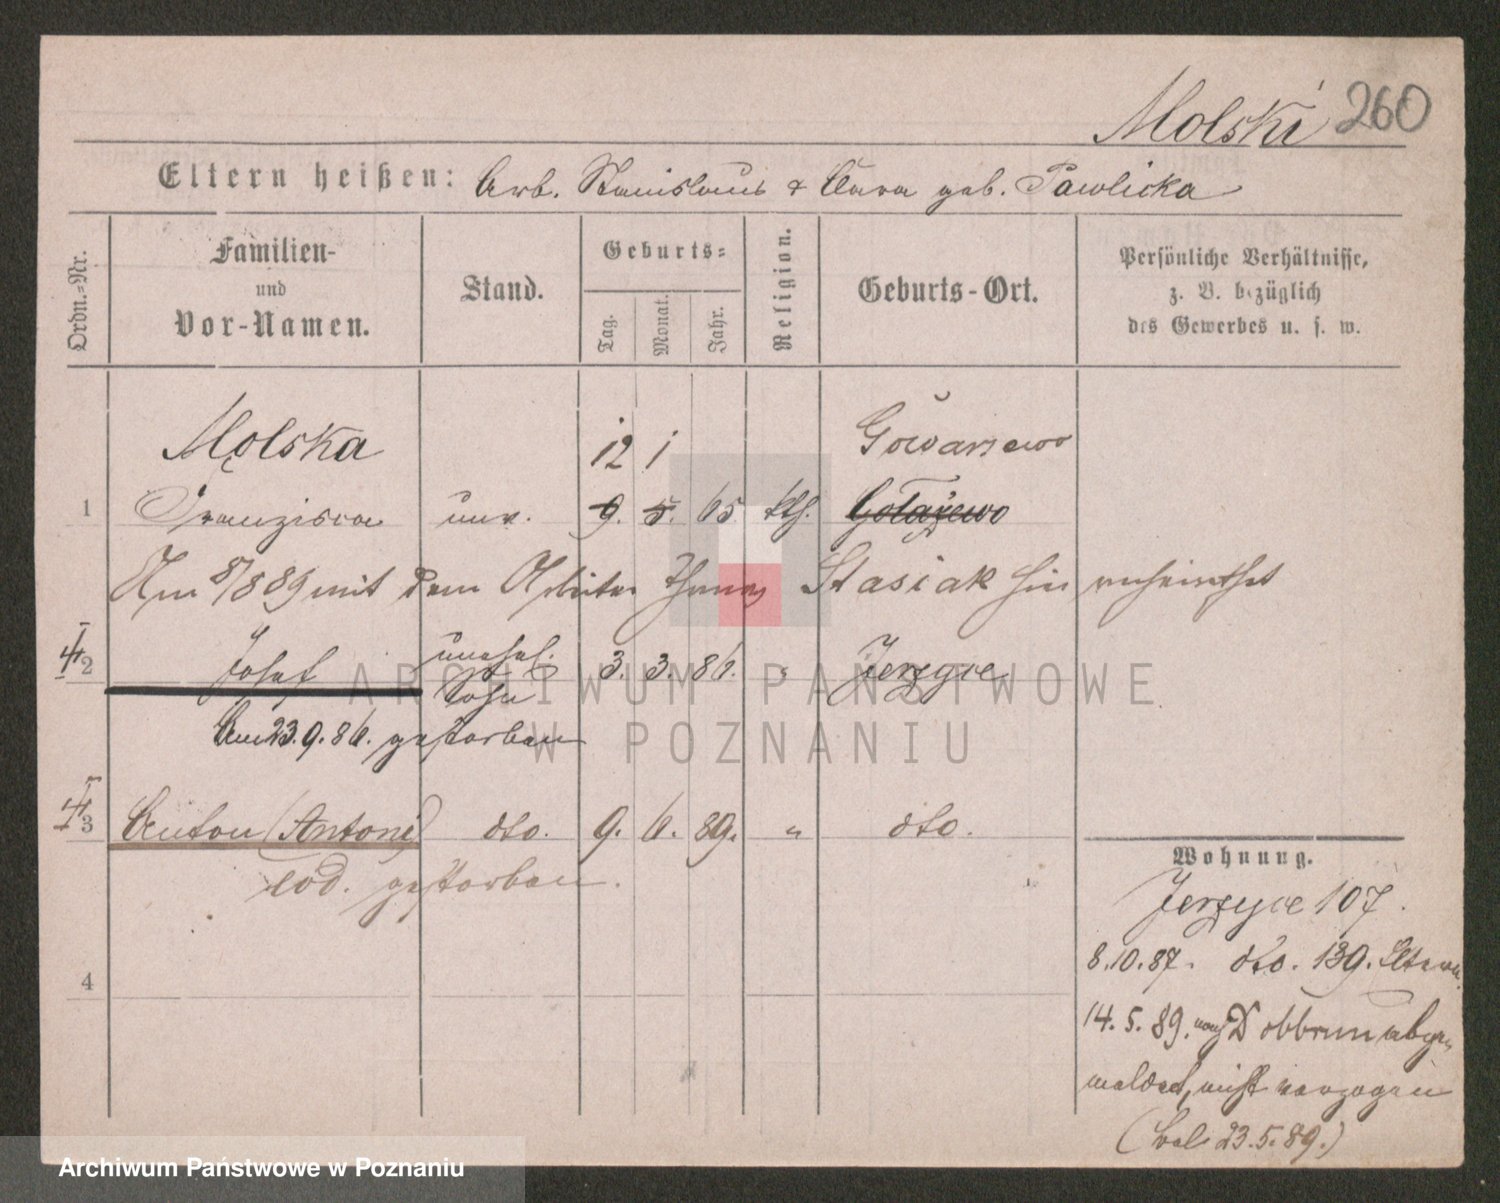 Molski 260
Eltern heißen: Arb. Stanislaus & Clara geb. Pawlicka
Ordn.-Nr.
Familien-
und
Vor-Namen.
Stand.
Geburts-
Tag.
Monat.
Jahr.
Religion.
Geburts-Ort.
Persönliche Verhältnisse,
z. B. bezüglich
des Gewerbes u. s. w.
Molska 12 1 Gowarzewo
1 Franziska unv. 9. 5. 65 kth. Gołażewo
Am 8/8 89 mit dem Arbeiter Thomas Stasiak hier verheirathet
2 Josef unehel. 3. 3. 86. " Jerzyce
Sohn
Am 23.9.86. gestorben
3 Anton (Antoni) dto. 9. 6. 89. " dto.
tod. gestorben.
4
Wohnung.
Jerzyce 107.
8.10.87. dto. 139. Eltern.
14.5.89. nach Dobbrun abge-
meldet, nicht verzogen
23.5.89.)
ARCHIWUM PAŃSTWOWE
W POZNANIU
Archiwum Państwowe w Poznaniu